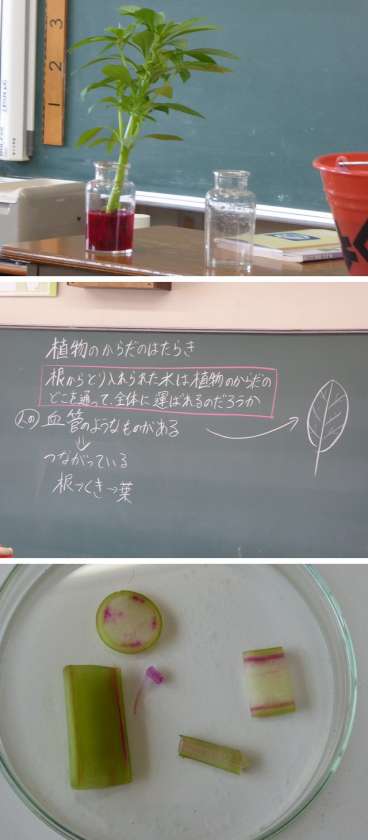 3
2
1
植物のからだのはたらき
根からとり入れられた水は植物のからだの
どこを通って、全体に運ばれるのだろうか
人の 血管のようなものがある
つながっている
根→くき→葉